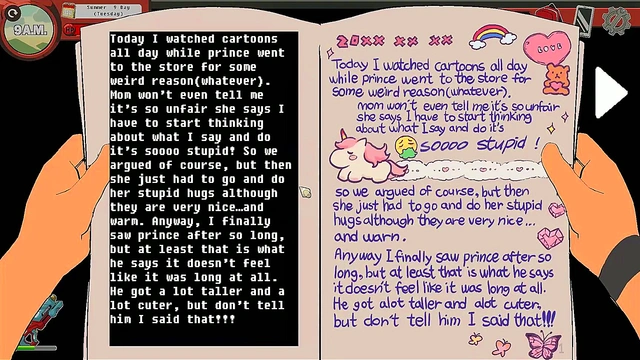 Summer 9 Day
(Tuesday)
9 A.M.
Today I watched cartoons
all day while prince went
to the store for some
weird reason(whatever).
Mom won't even tell me
it's so unfair she says I
have to start thinking
about what I say and do
it's soooo stupid! So we
argued of course, but then
she just had to go and do
her stupid hugs although
they are very nice…and
warm. Anyway, I finally
saw prince after so long,
but at least that is what
he says it doesn't feel
like it was long at all.
He got a lot taller and a
lot cuter, but don't tell
him I said that!!!
20XX XX XX
LOVE
Today I watched cartoons all day
while prince went to the store for
some weird reason(whatever).
mom won't even tell me it's so unfair
she says I have to start thinking
about what I say and do it's
soooo stupid !
so we argued of course, but then
she just had to go and do her stupid
hugs although they are very nice...
and warn.
Anyway I finally saw prince after so
long, but at least that is what he says
it doesn't feel like it was long at all.
He got alot taller and alot cuter,
but don't tell him I said that!!!